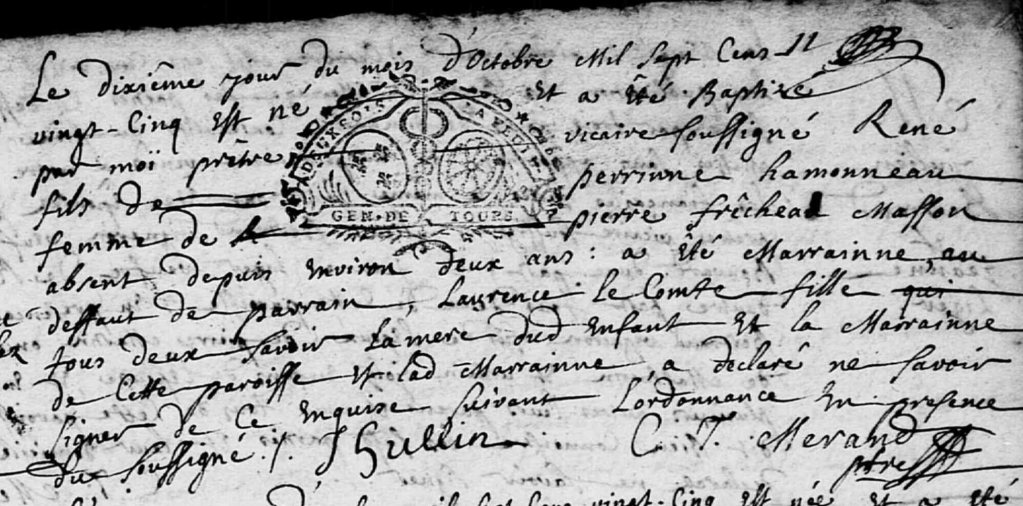 Le dixiême jour du mois d'Octobre Mil Sept Cens
vingt-Cinq Est né Et a Été Baptizé
par moï prêtre vicaire soussigné René
fils de perrinne hamonneau
femme de pierre frêcheau Masson
absent depuis Environ deux ans : a Été Marrainne, au
deffaut de parrain, Laurence le Comte fille qui
tous deux savoir La mere dud Enfant Et la Marrainne
de Cette paroisse Et lad Marrainne, a declaré ne savoir
signer de Ce Enquise suivant Lordonnance En presence
du soussigné ./. J Hullin C. T. Merand
ptre
DEUX SOLS LA FEUILLE
GEN. DE TOURS
vingt-Cinq Est née Et a Été